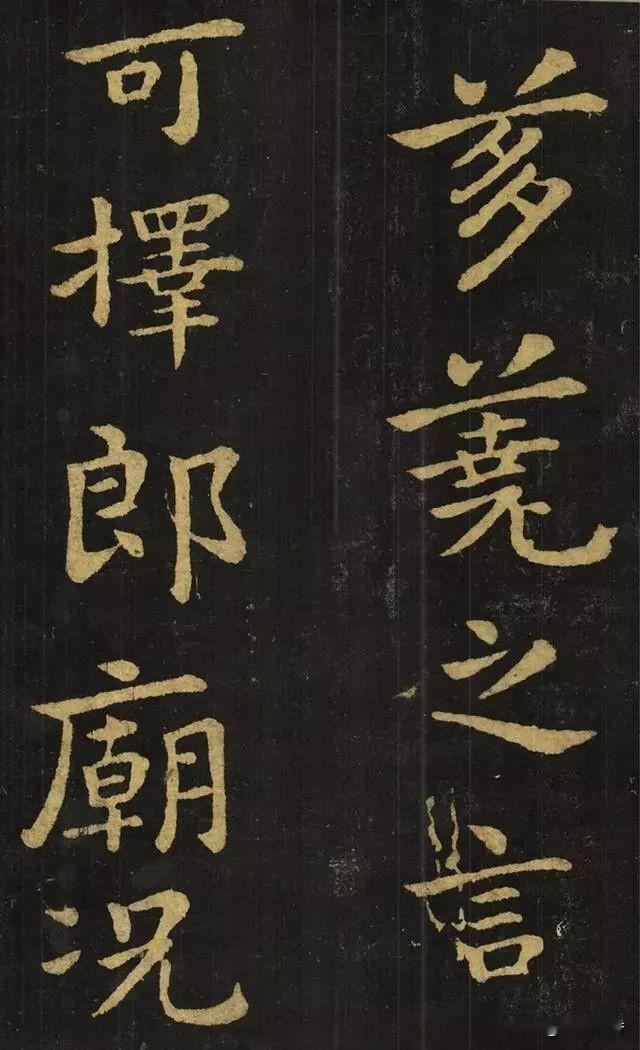 芻蕘之言
可擇郎廟况